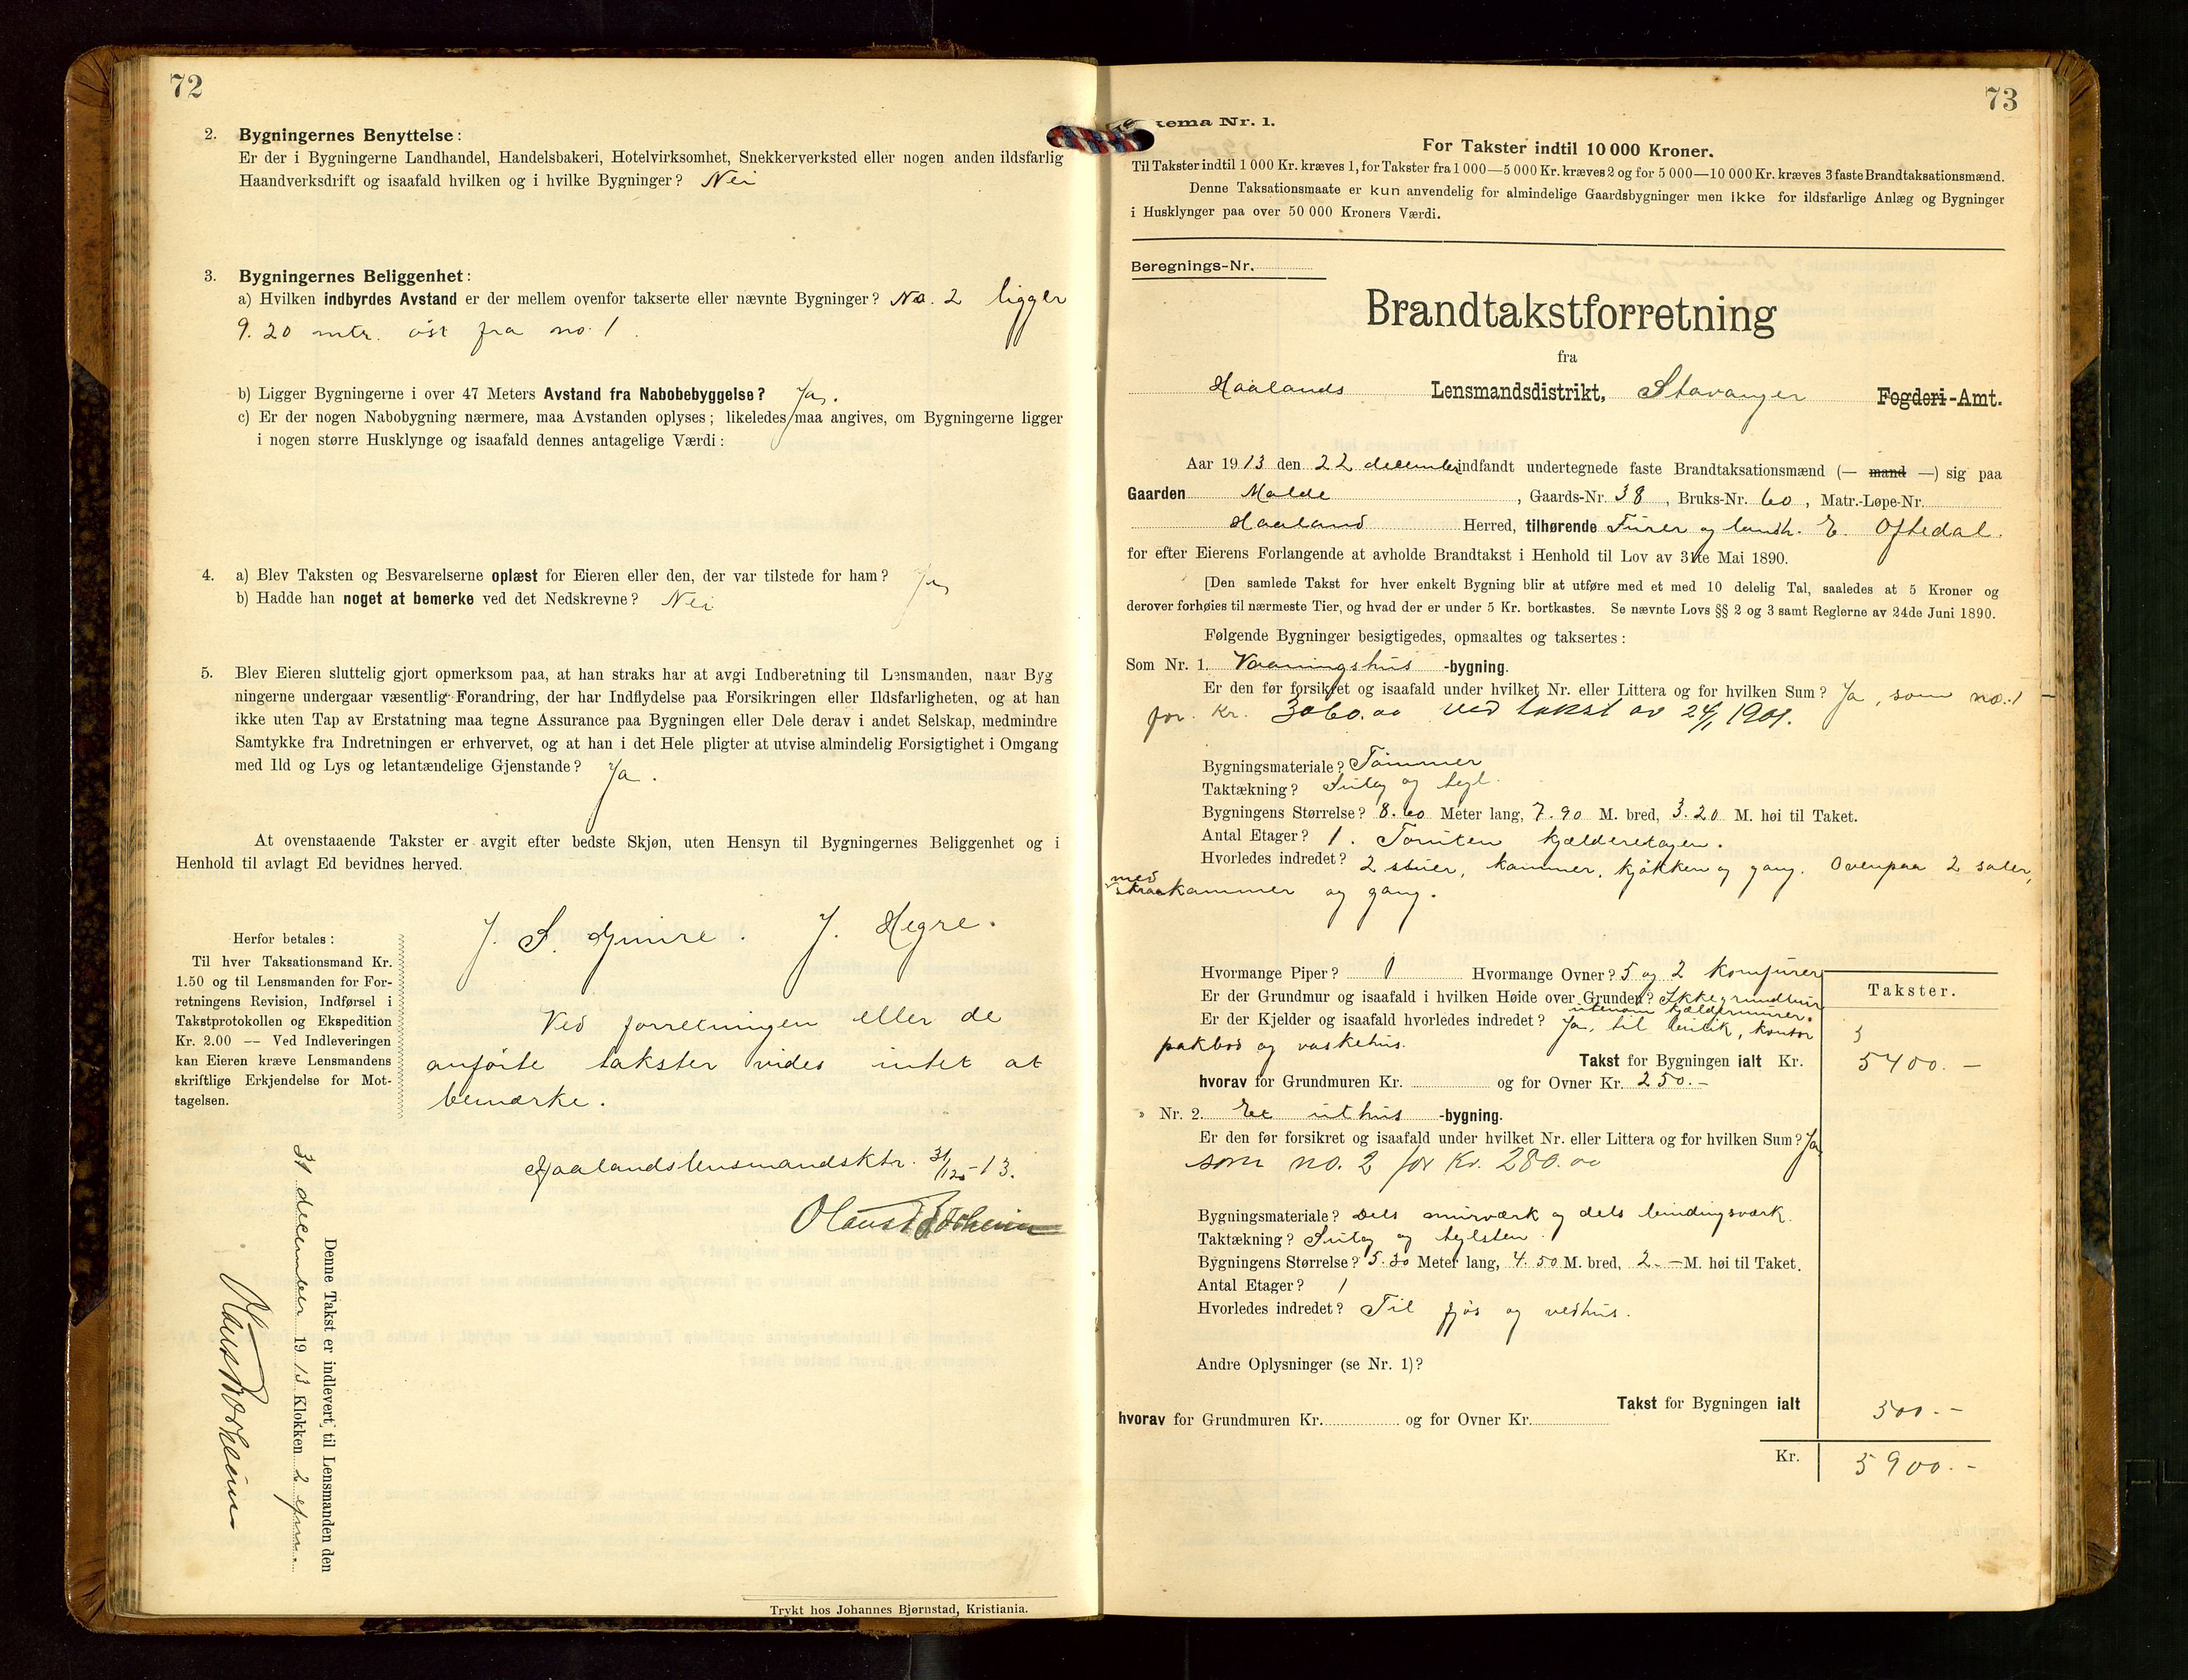 72
2. Bygningernes Benyttelse:
Er der i Bygningerne Landhandel, Handelsbakeri, Hotelvirksomhet, Snekkerverksted eller nogen anden ildsfarlig
Haandverksdrift og isaafald hvilken og i hvilke Bygninger? Nei
3. Bygningernes Beliggenhet:
a) Hvilken indbyrdes Avstand er der mellem ovenfor takserte eller nævnte Bygninger? No. 2 ligger
9.20 mtr. øst fra no. 1.
b) Ligger Bygningerne i over 47 Meters Avstand fra Nabobebyggelse? Ja.
c) Er der nogen Nabobygning nærmere, maa Avstanden oplyses; likeledes maa angives, om Bygningerne ligger
i nogen større Husklynge og isaafald dennes antagelige Værdi:
4. a) Blev Taksten og Besvarelserne oplæst for Eieren eller den, der var tilstede for ham? Ja
b) Hadde han noget at bemerke ved det Nedskrevne? Nei
5. Blev Eieren sluttelig gjort opmerksom paa, at han straks har at avgi Indberetning til Lensmanden, naar Byg
ningerne undergaar væsentlig Forandring, der har Indflydelse paa Forsikringen eller Ildsfarligheten, og at han
ikke uten Tap av Erstatning maa tegne Assurance paa Bygningen eller Dele derav i andet Selskap, medmindre
Samtykke fra Indretningen er erhvervet, og at han i det Hele pligter at utvise almindelig Forsigtighet i Omgang
med Ild og Lys og letantændelige Gjenstande? Ja.
At ovenstaaende Takster er avgit efter bedste Skjøn, uten Hensyn til Bygningernes Beliggenhet og i
Henhold til avlagt Ed bevidnes herved.
J. S. Gimre. J. Hegre.
Herfor betales:
Til hver Taksationsmand Kr.
1.50 og til Lensmanden for For-
retningens Revision, Indførsel i
Takstprotokollen og Ekspedition
Kr. 2.00 — Ved Indleveringen
kan Eieren kræve Lensmandens
skriftlige Erkjendelse for Mot-
tagelsen.
Ved forretningen eller de
anførte takster vides intet at
bemærke.
Haalandslensmandsktr. 31/12-13.
Olaus Forheim
Denne Takst er indlevert til Lensmanden den
31 december 1913 Klokken 2 efm.
Olaus Forheim
Trykt hos Johannes Bjørnstad, Kristiania.
73
kema Nr. 1.
For Takster indtil 10 000 Kroner.
Til Takster indtil 1 000 Kr. kræves 1, for Takster fra 1 000—5 000 Kr. kræves 2 og for 5 000—10 000 Kr. kræves 3 faste Brandtaksationsmænd.
Denne Taksationsmaate er kun anvendelig for almindelige Gaardsbygninger men ikke for ildsfarlige Anlæg og Bygninger
i Husklynger paa over 50 000 Kroners Værdi.
Beregnings-Nr.
Brandtakstforretning
fra
Haalands Lensmandsdistrikt, Stavanger Fogderi-Amt.
Aar 1913 den 22 december indfandt undertegnede faste Brandtaksationsmænd (— mand —) sig paa
Gaarden Malde, Gaards-Nr. 38, Bruks-Nr. 60, Matr.-Løpe-Nr.
Haaland Herred, tilhørende Furer og landh. E. Oftedal.
for efter Eierens Forlangende at avholde Brandtakst i Henhold til Lov av 31te Mai 1890.
[Den samlede Takst for hver enkelt Bygning blir at utføre med et med 10 delelig Tal, saaledes at 5 Kroner og
derover forhøies til nærmeste Tier, og hvad der er under 5 Kr. bortkastes. Se nævnte Lovs §§ 2 og 3 samt Reglerne av 24de Juni 1890.
Følgende Bygninger besigtigedes, opmaaltes og taksertes:
Som Nr. 1. Vaaningshus -bygning.
Er den før forsikret og isaafald under hvilket Nr. eller Littera og for hvilken Sum? Ja, som no. 1
for. Kr. 3060.00 ved takst av 24/1 1901.
Bygningsmateriale? Tømmer
Taktækning? Sutag og tegl.
Bygningens Størrelse? 8.60 Meter lang, 7.90 M. bred, 3.20 M. høi til Taket.
Antal Etager? 1. Foruten kjælderetagen.
Hvorledes indredet? 2 stuer, kammer, kjøkken og gang. Ovenpaa 2 saler,
med
skraakammer og gang.
Hvormange Piper? 1 Hvormange Ovner? 5 og 2 komfurer
Takster.
Er der Grundmur og isaafald i hvilken Høide over Grunden? Ikke grundmur
utenom kjældermurer.
Er der Kjelder og isaafald hvorledes indredet? Ja, til butik, kontor
pakbod og vaskehus.
Takst for Bygningen ialt Kr. 5400.—
hvorav for Grundmuren Kr. og for Ovner Kr. 250.—
» Nr. 2. Et uthus -bygning.
Er den før forsikret og isaafald under hvilket Nr. eller Littera og for hvilken Sum? Ja
som no. 2 for Kr. 280.00
Bygningsmateriale? Dels murværk og dels bindingsværk.
Taktækning? Sutag og teglsten.
Bygningens Størrelse? 5.30 Meter lang, 4.50 M. bred, 2.— M. høi til Taket.
Antal Etager? 1
Hvorledes indredet? Til fjøs og vedhus.
Andre Oplysninger (se Nr. 1)?
Takst for Bygningen ialt 500.—
hvorav for Grundmuren Kr. og for Ovner Kr.
Kr. 5900.—